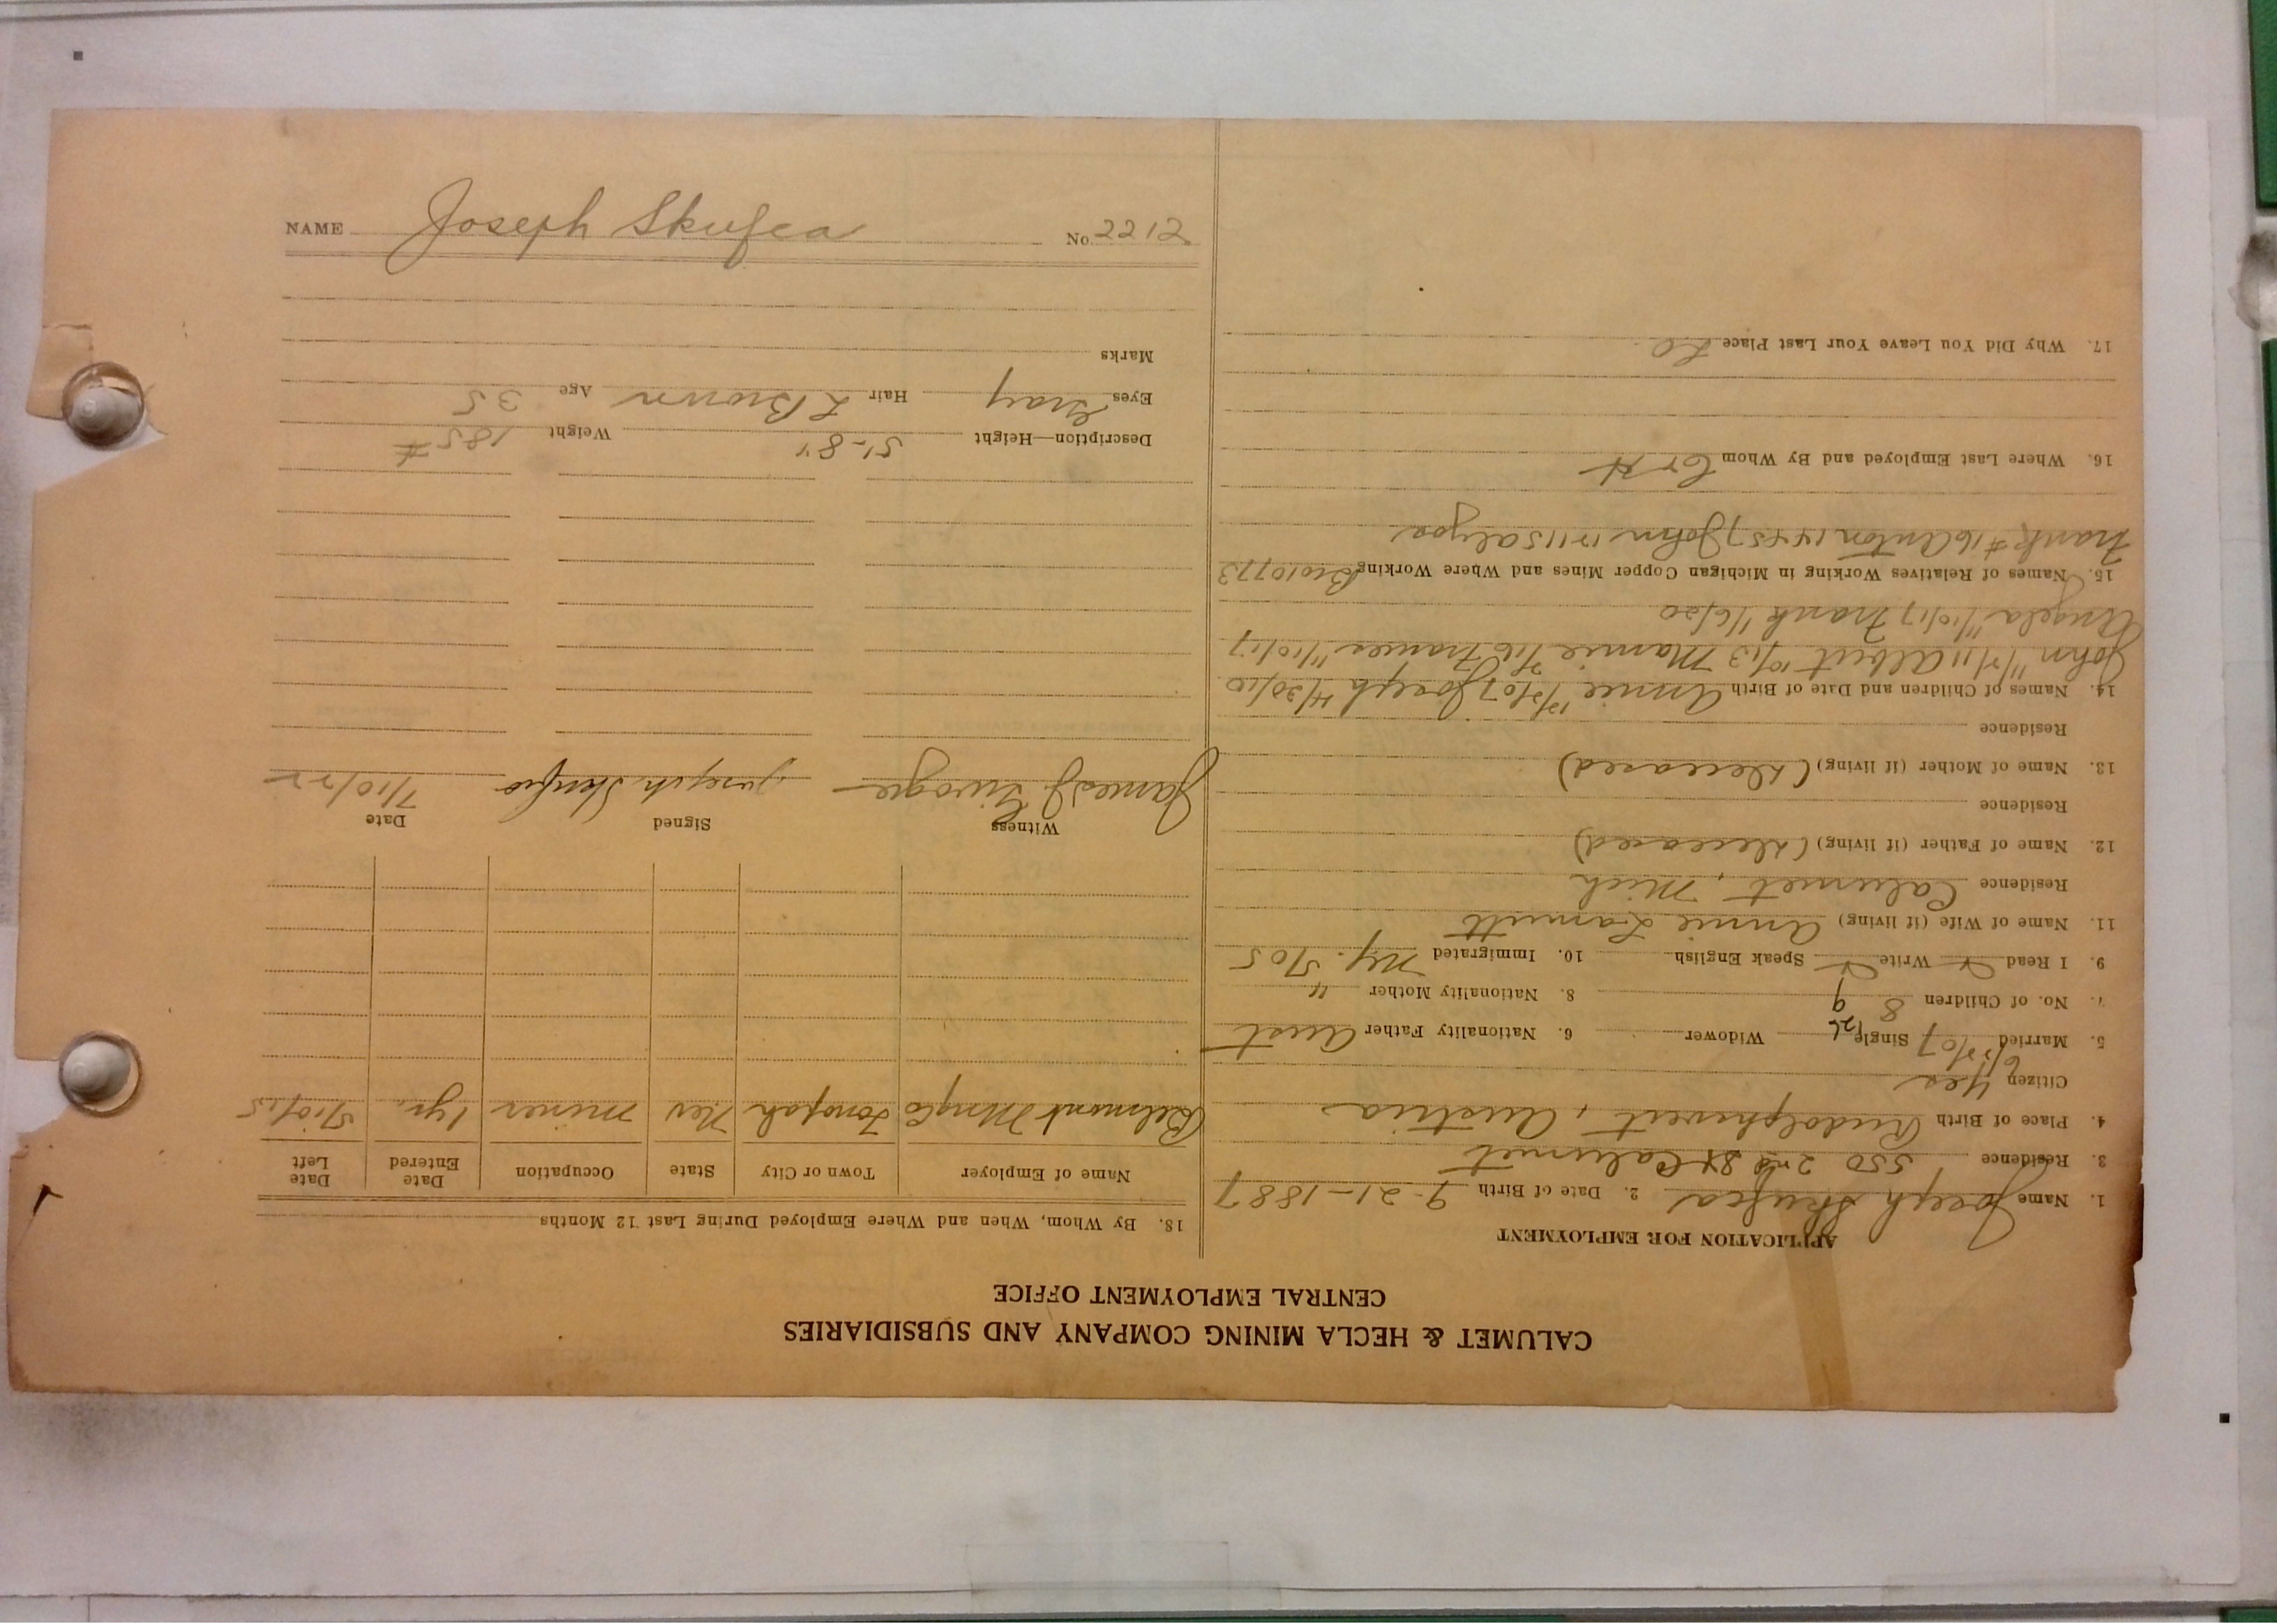 CALUMET & HECLA MINING COMPANY AND SUBSIDIARIES
CENTRAL EMPLOYMENT OFFICE
APPLICATION FOR EMPLOYMENT
1. Name Joseph Skufca 2. Date of Birth 9-21-1887
3. Residence 550 2nd St Calumet
4. Place of Birth Rudolphswert, Austria
Citizen Yes
5. Married 07 Single Widower 6. Nationality Father Aust
7. No. of Children 8 9 8. Nationality Mother "
9. I Read Write Speak English 10. Immigrated N.Y. 5/05
11. Name of Wife (if living) Annie
Residence Calumet, Mich
12. Name of Father (if living) (deceased)
Residence
13. Name of Mother (if living) (deceased)
Residence
14. Names of Children and Date of Birth Annie Joseph 4/30/10
John Albert 10/13 Mamie Frances 11/10/17
Angela 11/10/17 Frank 1/6/20
15. Names of Relatives Working in Michigan Copper Mines and Where Working Bro 10773
Frank #16 Anton John
16. Where Last Employed and By Whom C & H
17. Why Did You Leave Your Last Place
18. By Whom, When and Where Employed During Last 12 Months
Name of Employer Town or City State Occupation Date Entered Date Left
Belmont Mng Co Tonopah Nev miner 1 yr. 5/10/15
Witness Signed Date
James J. Joseph Skufca 7/10/22
Description—Height 5'-8" Weight 185#
Eyes Gray Hair L Brown Age 35
Marks
NAME Joseph Skufca No. 2212